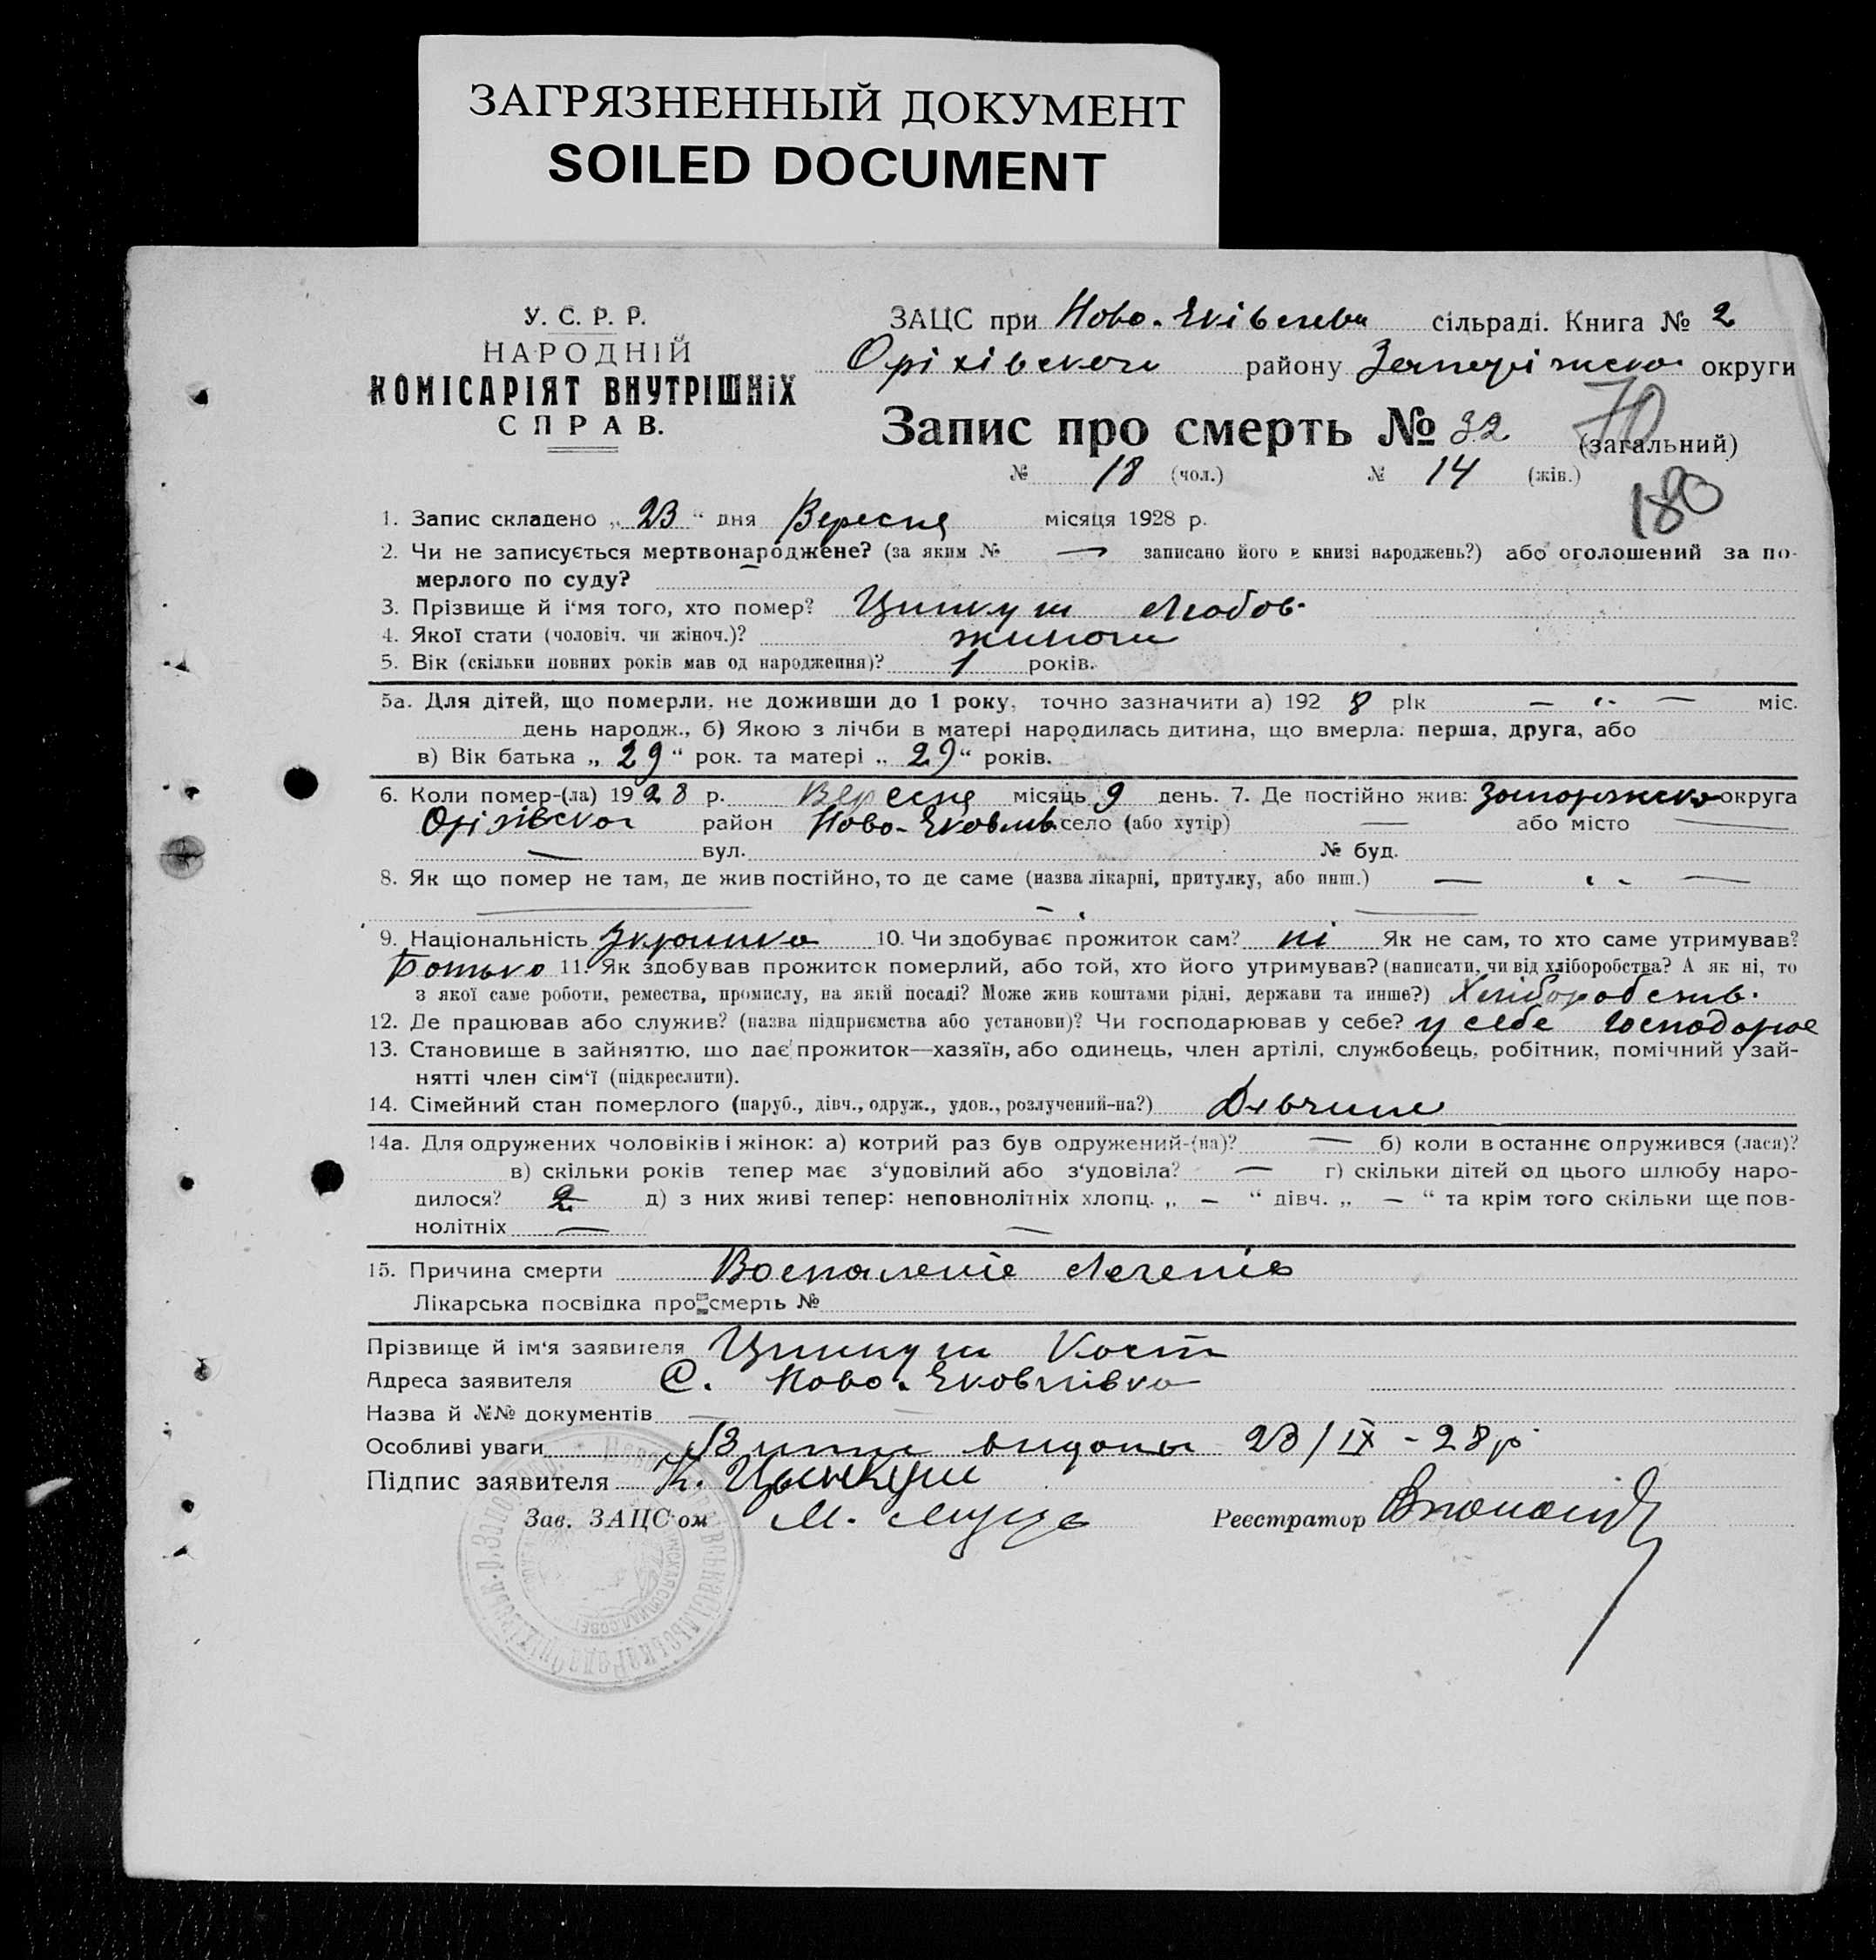 ЗАГРЯЗНЕННЫЙ ДОКУМЕНТ
SOILED DOCUMENT
У. С. Р. Р.
НАРОДНІЙ
КОМІСАРІЯТ ВНУТРІШНІХ
СПРАВ.
ЗАЦС при Ново-Яківлевк сільраді. Книга № 2
Оріхівского району Запоріжско округи
Запис про смерть № 32 (загальний)
70
№ 18 (чол.) № 14 (жін.)
180
1. Запис складено „ 23 “ дня Вересня місяця 1928 р.
2. Чи не записується мертвонароджене? (за яким № — записано його в книзі народжень?) або оголошений за по-
мерлого по суду?
3. Прізвище й ім‘я того, хто помер? Цинкуш Любов
4. Якої статі (чоловіч. чи жіноч.)? жиноча
5. Вік (скільки повних років мав од народження)? 1 років.
5а. Для дітей, що померли, не доживши до 1 року, точно зазначити а) 192 8 рік — „ — міс.
день народж., б) Якою з лічби в матері народилась дитина, що вмерла: перша, друга, або
в) Вік батька „ 29 “ рок. та матері „ 29 “ років.
6. Коли помер-(ла) 1928 р. Вересня місяць 9 день. 7. Де постійно жив: Запоріжско округа
Оріхівског район Ново-Яковлів село (або хутір) — або місто —
— вул. № буд.
8. Як що помер не там, де жив постійно, то де саме (назва лікарні, притулку, або инш.) — „ —
9. Національність Украинка 10. Чи здобуває прожиток сам? ні Як не сам, то хто саме утримував?
Батько 11. Як здобував прожиток померлий, або той, хто його утримував? (написати, чи від хліборобства? А як ні, то
з якої саме роботи, ремества, промислу, на якій посаді? Може жив коштами рідні, держави та инше?) Хліборобств.
12. Де працював або служив? (назва підприємства або установи)? Чи господарював у себе? у себе господарює
13. Становище в зайняттю, що дає прожиток—хазяїн, або одинець, член артілі, службовець, робітник, помічний у зай-
нятті член сім‘ї (підкреслити).
14. Сімейний стан померлого (паруб., дівч., одруж., удов., розлучений-на?) Дівчина
14а. Для одружених чоловіків і жінок: а) котрий раз був одружений-(на)? — б) коли в останнє одружився (лася)?
в) скільки років тепер має з‘удовілий або з‘удовіла? — г) скільки дітей од цього шлюбу наро-
дилося? 2 д) з них живі тепер: неповнолітніх хлопц. „ — “ дівч. „ — “ та крім того скільки ще пов-
нолітніх —
15. Причина смерти Воспаленіе Легенів
Лікарська посвідка про смерть №
Прізвище й ім‘я заявителя Цинкуш Кост
Адреса заявителя С. Ново-Яковлівка
Назва й №№ документів —
Особливі уваги видано 23/IX - 28 р
Підпис заявителя К. Цынкуш
Зав. ЗАЦС‘ом М. Реєстратор